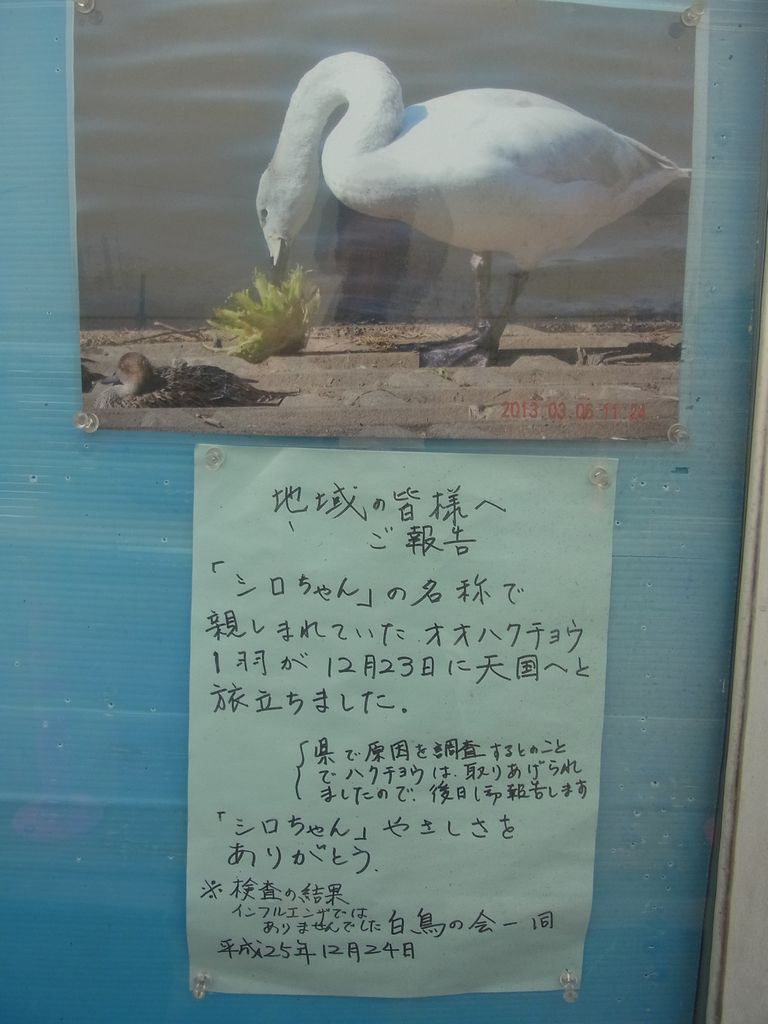 2013.03.06 11:24
地域の皆様へ
ご報告
「シロちゃん」の名称で
親しまれていたオオハクチョウ
1羽が12月23日に天国へと
旅立ちました。
県で原因を調査するとのこと
でハクチョウは、取りあげられ
ましたので、後日
報告します
「シロちゃん」やさしさを
ありがとう、
※検査の結果
インフルエンザでは
ありませんでした
白鳥の会一同
平成25年12月24日